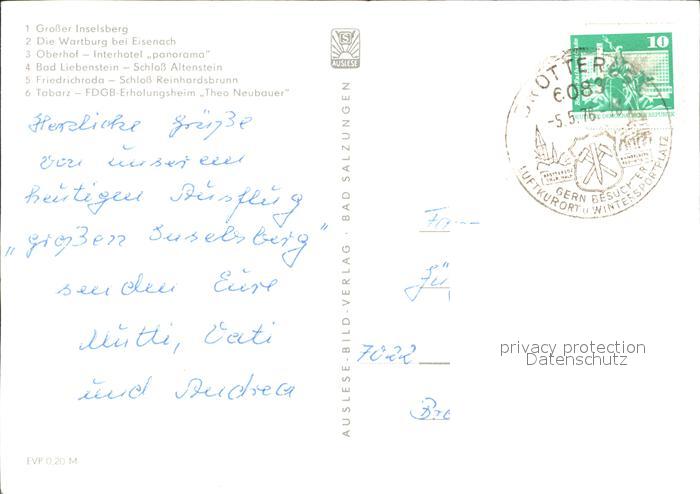 1 Großer Inselsberg
2 Die Wartburg bei Eisenach
3 Oberhof – Interhotel „panorama"
4 Bad Liebenstein – Schloß Altenstein
5 Friedrichroda – Schloß Reinhardsbrunn
6 Tabarz – FDGB-Erholungsheim „Theo Neubauer"
Herzliche Grüße
von unserem
heutigen Ausflug
„großen Inselsberg"
senden Eure
Mutti, Vati
und Andrea
EVP 0,20 M
AUSLESE
AUSLESE-BILD-VERLAG · BAD SALZUNGEN
10
6083
-5.5.76
GERN BESUCHTER
LUFTKURORT u WINTERSPORTPLATZ
7022
privacy protection
Datenschutz